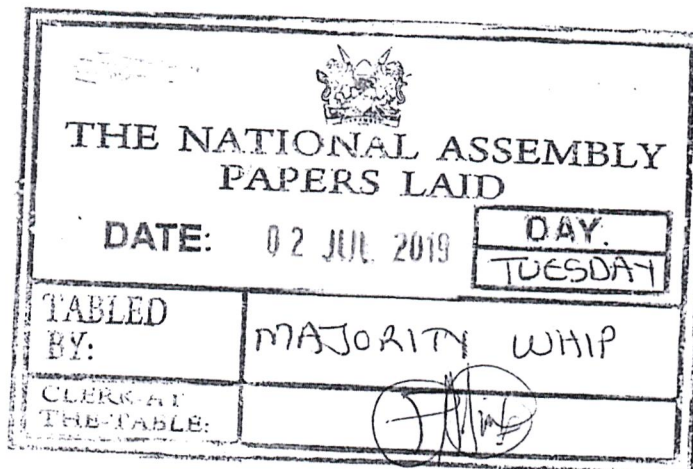 THE NATIONAL ASSEMBLY
PAPERS LAID
DATE: 02 JUL 2019
DAY.
TUESDAY
TABLED BY:
MAJORITY WHIP
CLERK-AT THE-TABLE: